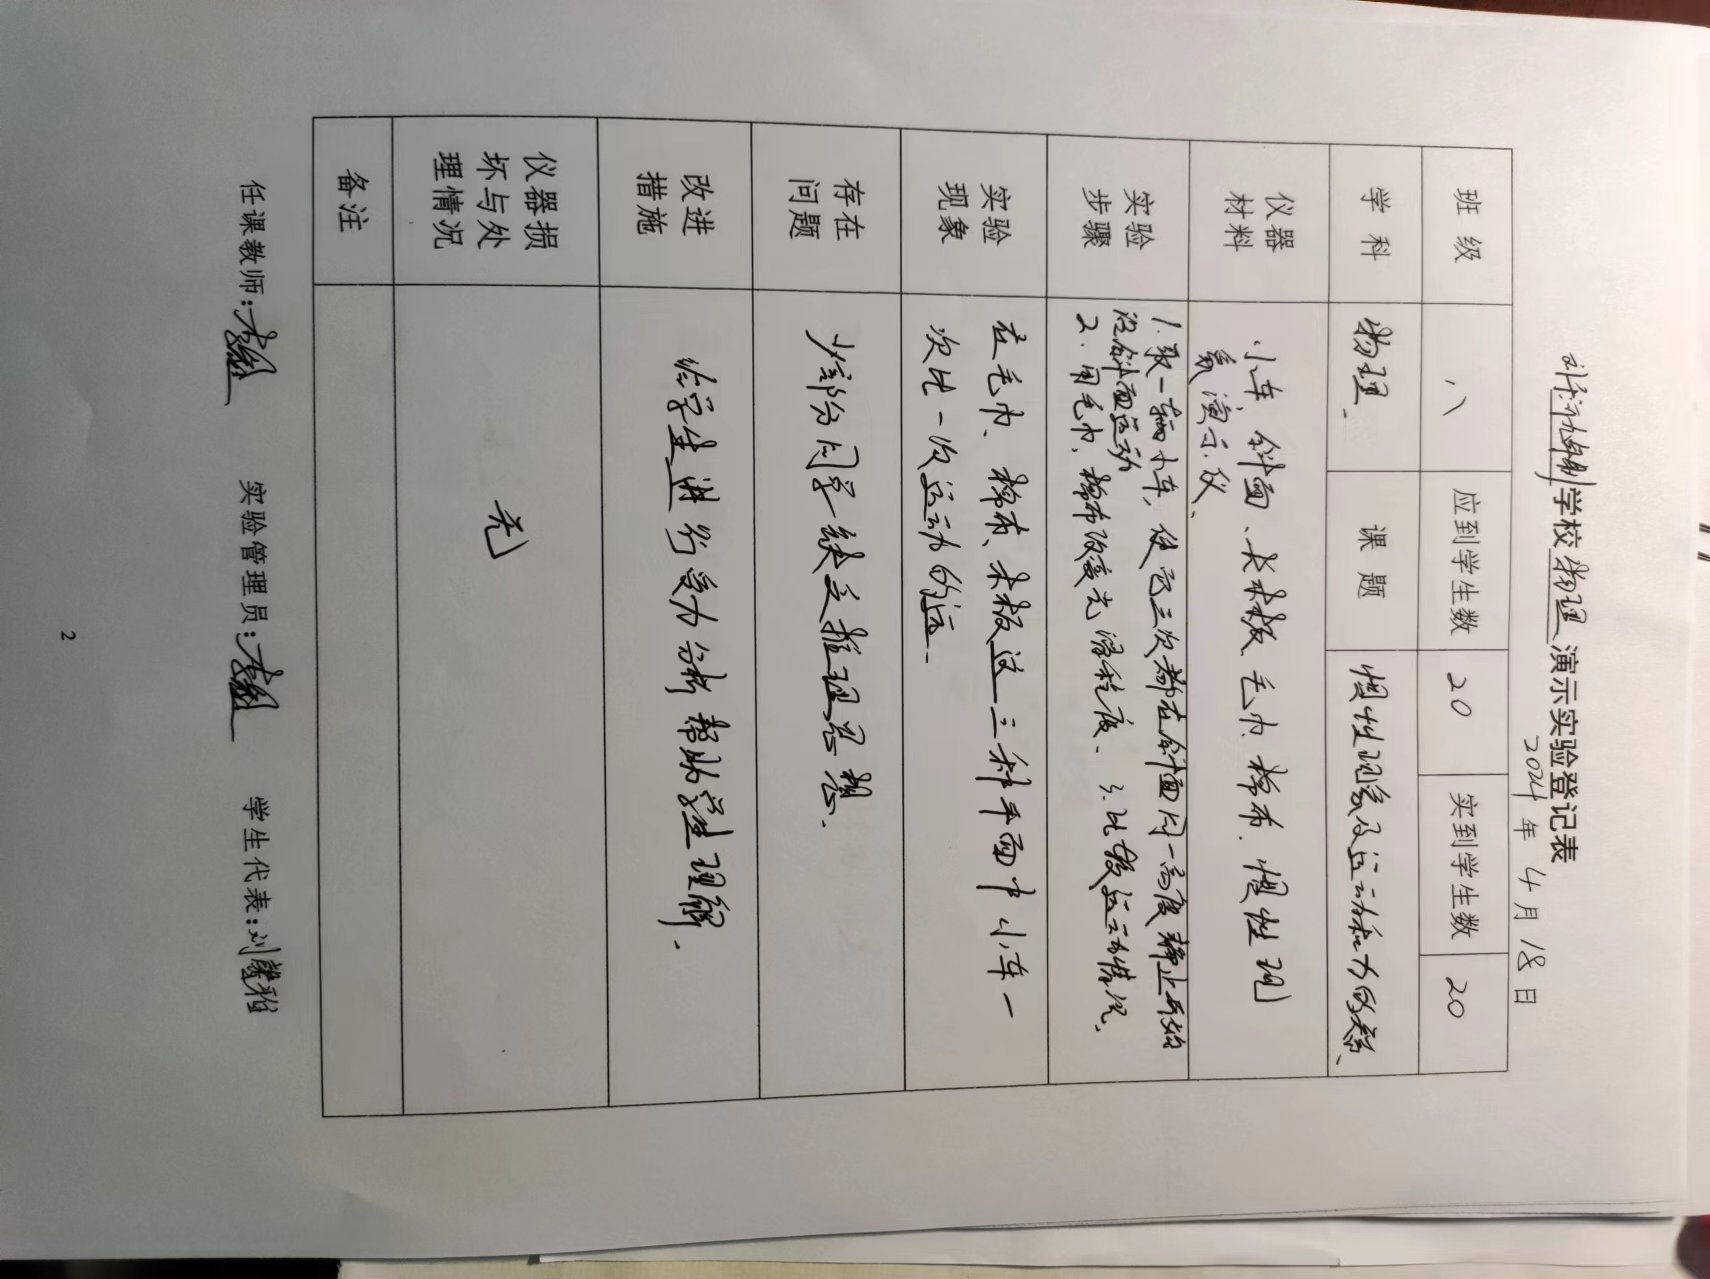 学校物理演示实验登记表
2024年4月18日
班级 八 应到学生数 20 实到学生数 20
学科 物理. 课题 惯性现象及运动和力的关系、
仪器材料 小车、斜面、长木板、毛巾、棉布、惯性现
象演示仪、
实验步骤 1.取一辆小车，使它三次都在斜面同一高度静止开始
沿斜面运动
2.用毛巾、棉布改变光滑程度、3.比较运动情况、
实验现象 在毛巾、棉布、木板这三种平面中小车一
次比一次运动的远.
存在问题 少部分同学缺乏推理思想.
改进措施 给学生进行受力分析帮助学生理解.
仪器损坏与处理情况 无
备注
任课教师: 实验管理员: 学生代表:刘馨雅
2